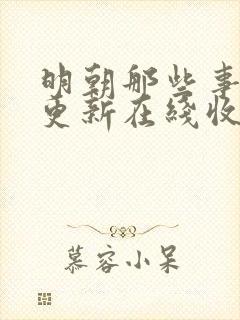 明朝那些事
更新在綫收
慕容小呆